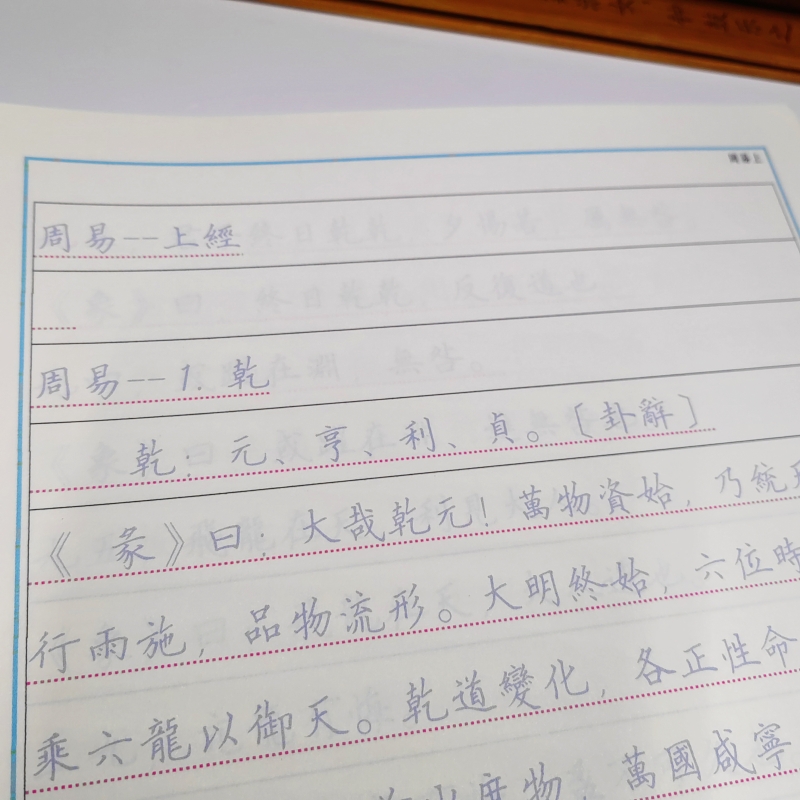 周易--上經
周易--1.乾
乾:元、亨、利、貞。〔卦辭〕
《彖》曰:大哉乾元!萬物資始,乃統
行雨施,品物流形。大明終始,六位時
乘六龍以御天。乾道變化,各正性命
庶物,萬國咸寧